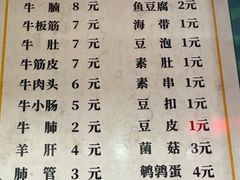 牛腩 8元
牛板筋 7元
牛肚 7元
牛筋皮 7元
牛肉头 6元
牛小肠 5元
牛肺 4元
羊肝 4元
肺管 3元
鱼豆腐 2元
海带 1元
豆泡 1元
素肚 1元
素串 1元
豆扣 1元
豆皮 1元
菌菇 3元
鹌鹑蛋 4元